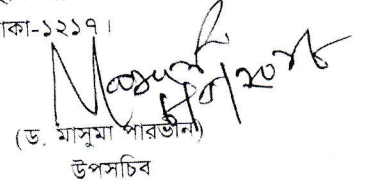 কা-১২১৭।
(ড. মাসুমা পারভীন)
উপসচিব